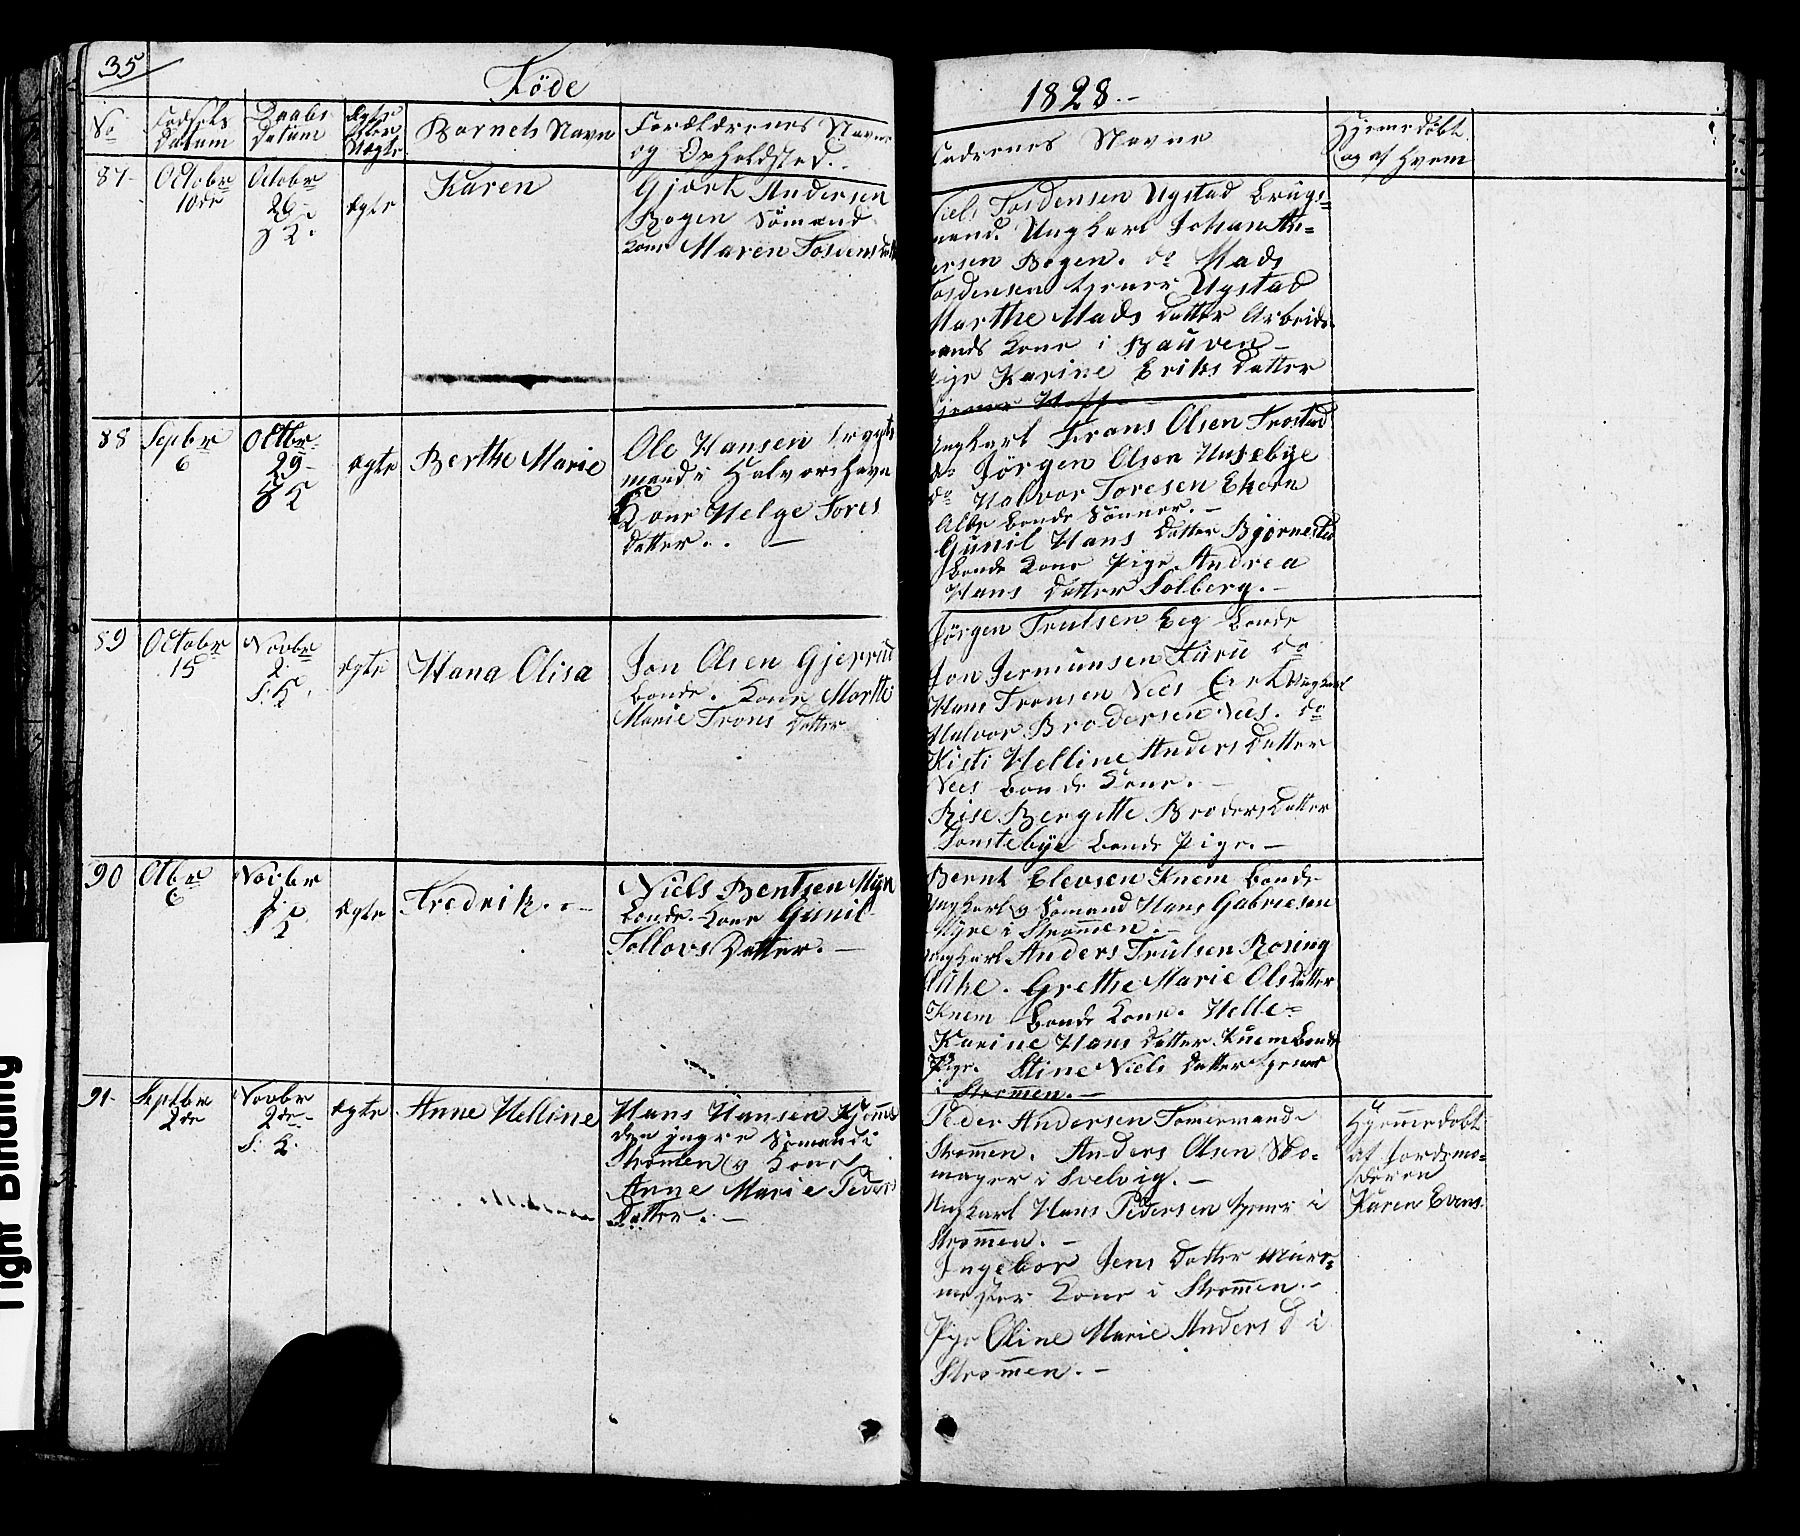 35
Føde
1828.-
No
Fødsels Datum
Daabs Datum
Ægte eller Uægte
Barnets Navn
Forældrenes Navne
og Opholdsted.
Fadrenes Navne
Hjemedøbt
og af hvem
87- Octobr 10de
Octobr 26
Ægte
Karen
Andersen
Bogen Sömand
Kone Maren
Ugstad Brugs=
mand. Ungkarl Johan An=
dersen Bogen. do Mads
tjener Ugstad
Marthe Mads datter Arbeids
mands Kone i
Pige Karine Eriks datter
88 Sepbr 6
Octbr 29-
Ægte
Berthe Marie
Ole Hansen
mand i Halvorshavn
Kone Helge Tores
datter. . —
Ungkarl Frans Olsen Trostad
do Jörgen Olsen Husebye
do Halvor Toresen Ekern
Alle Bonde Sönner.-
Gunil Hans datter Bjørnestad
Bonde Kone Pige Andrea
Hans datter Solberg.-
89 Octobr 15
Novbr 2
S: K.
Ægte
Hana Olisa
Jon Olsen
bonde. Kone Marthe
Marie Trons datter
Jörgen Trulsen Eeg Bonde
Jon Jermunsen Furu do
Hans Tronsen Nees Ungkarl
Halvor Brodersen Nees. do
Kisti Helline Anders datter
Nees bonde Kone.-
Rise Bergitte Broders datter
Tonstebye bonde Pige.-
90 Otbr 6
Novbr
Ægte
Fredrik. -
Niels Bentsen
bonde- Kone Gunil
Tollovs Datter.-
Bernt Elevsen Knem bonde
Ungkarl og Sömand Hans Gabrielsen
i Strømmen.-
Ungkarl Anders Trulsen Rosing
Grethe Marie Ols datter
Knem bonde Kone. Helle=
Karine Hans datter Knem bonde
Pige. Stine Niels datter tjener
i Strømmen.-
91- Septbr 2de
Novbr 2de-
S: K.
Ægte
Anne Helline
Hans Hansen
den yngre Sömand i
Strømen og Kone
Anne Marie Peders
Datter.-
Peder Andersen Tømermand
Strømen. Anders Olsen Sko-
mager i Svelvig.-
Ungkarl Hans Pedersen tjener i
Strømmen.-
Ingebor Jens datter Muur=
mester Kone i Strømmen.-
Pige Oline Marie Anders D i
Strømmen.-
Hjemmedøbt
af Jordemo=
deren
Karen Evens.
Tight Binding